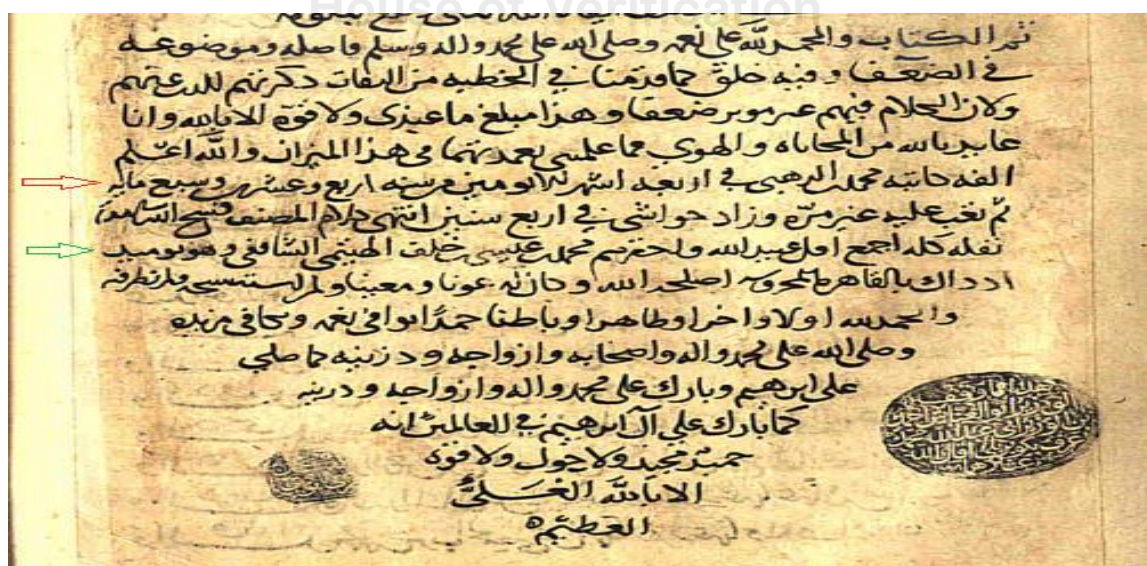 House of Verification
تم الكتاب والحمد لله على نعمه وصلى الله على محمد واله وسلم فاصله وموضوعه
في الضعفا وفيه خلق كما قدمنا في الخطبة من الثقات ذكرتهم للذب عنهم
ولان الكلام فيهم غير موثر ضعفا وهذا مبلغ ما عندي ولا قوة الا بالله وانا
عايذ بالله من المحاباه والهوى فما علمتني تعمدتهما في هذا الميزان والله اعلم
الفه كاتبه محمد الذهبي في اربعة اشهر الا يومين من سنه اربع وعشرين وسبع مايه
ثم مر عليه غير مره وزاد حواشي في اربع سنين انتهى كلام المصنف
نقله كله اجمع اقل عبيد الله واحقرهم محمد عيسى خلف الشافعي وهو يوميذ
اذ ذاك بالقاهره المحروسه اصلحه الله وكان له عونا ومعينا
والحمد لله اولا واخرا وظاهرا وباطنا حمدا يوافي نعمه ويكافي مزيده
وصلى الله على محمد واله واصحابه وازواجه وذريته كما صلى
على ابرهيم وبارك على محمد واله وازواجه وذريته
كما بارك على آل ابرهيم في العالمين انه
حميد مجيد ولا حول ولا قوة
الا بالله العلي
العظيم